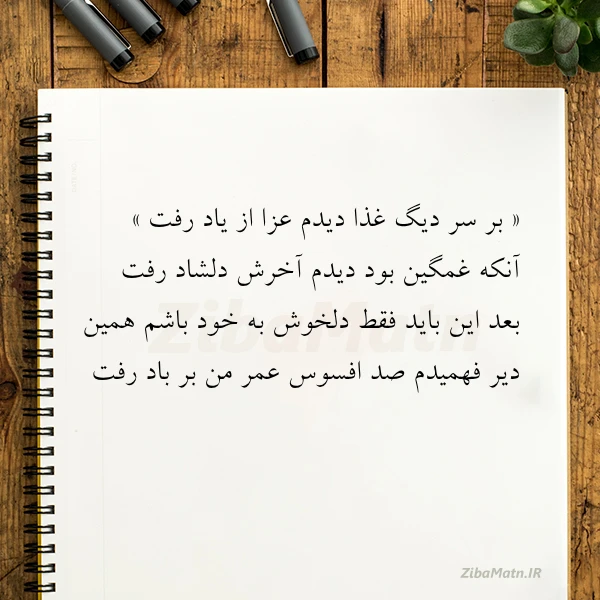 « بر سر دیگ غذا دیدم عزا از یاد رفت »
آنکه غمگین بود دیدم آخرش دلشاد رفت
بعد این باید فقط دلخوش به خود باشم همین
دیر فهمیدم صد افسوس عمر من بر باد رفت
ZibaMatn
ZibaMatn.IR